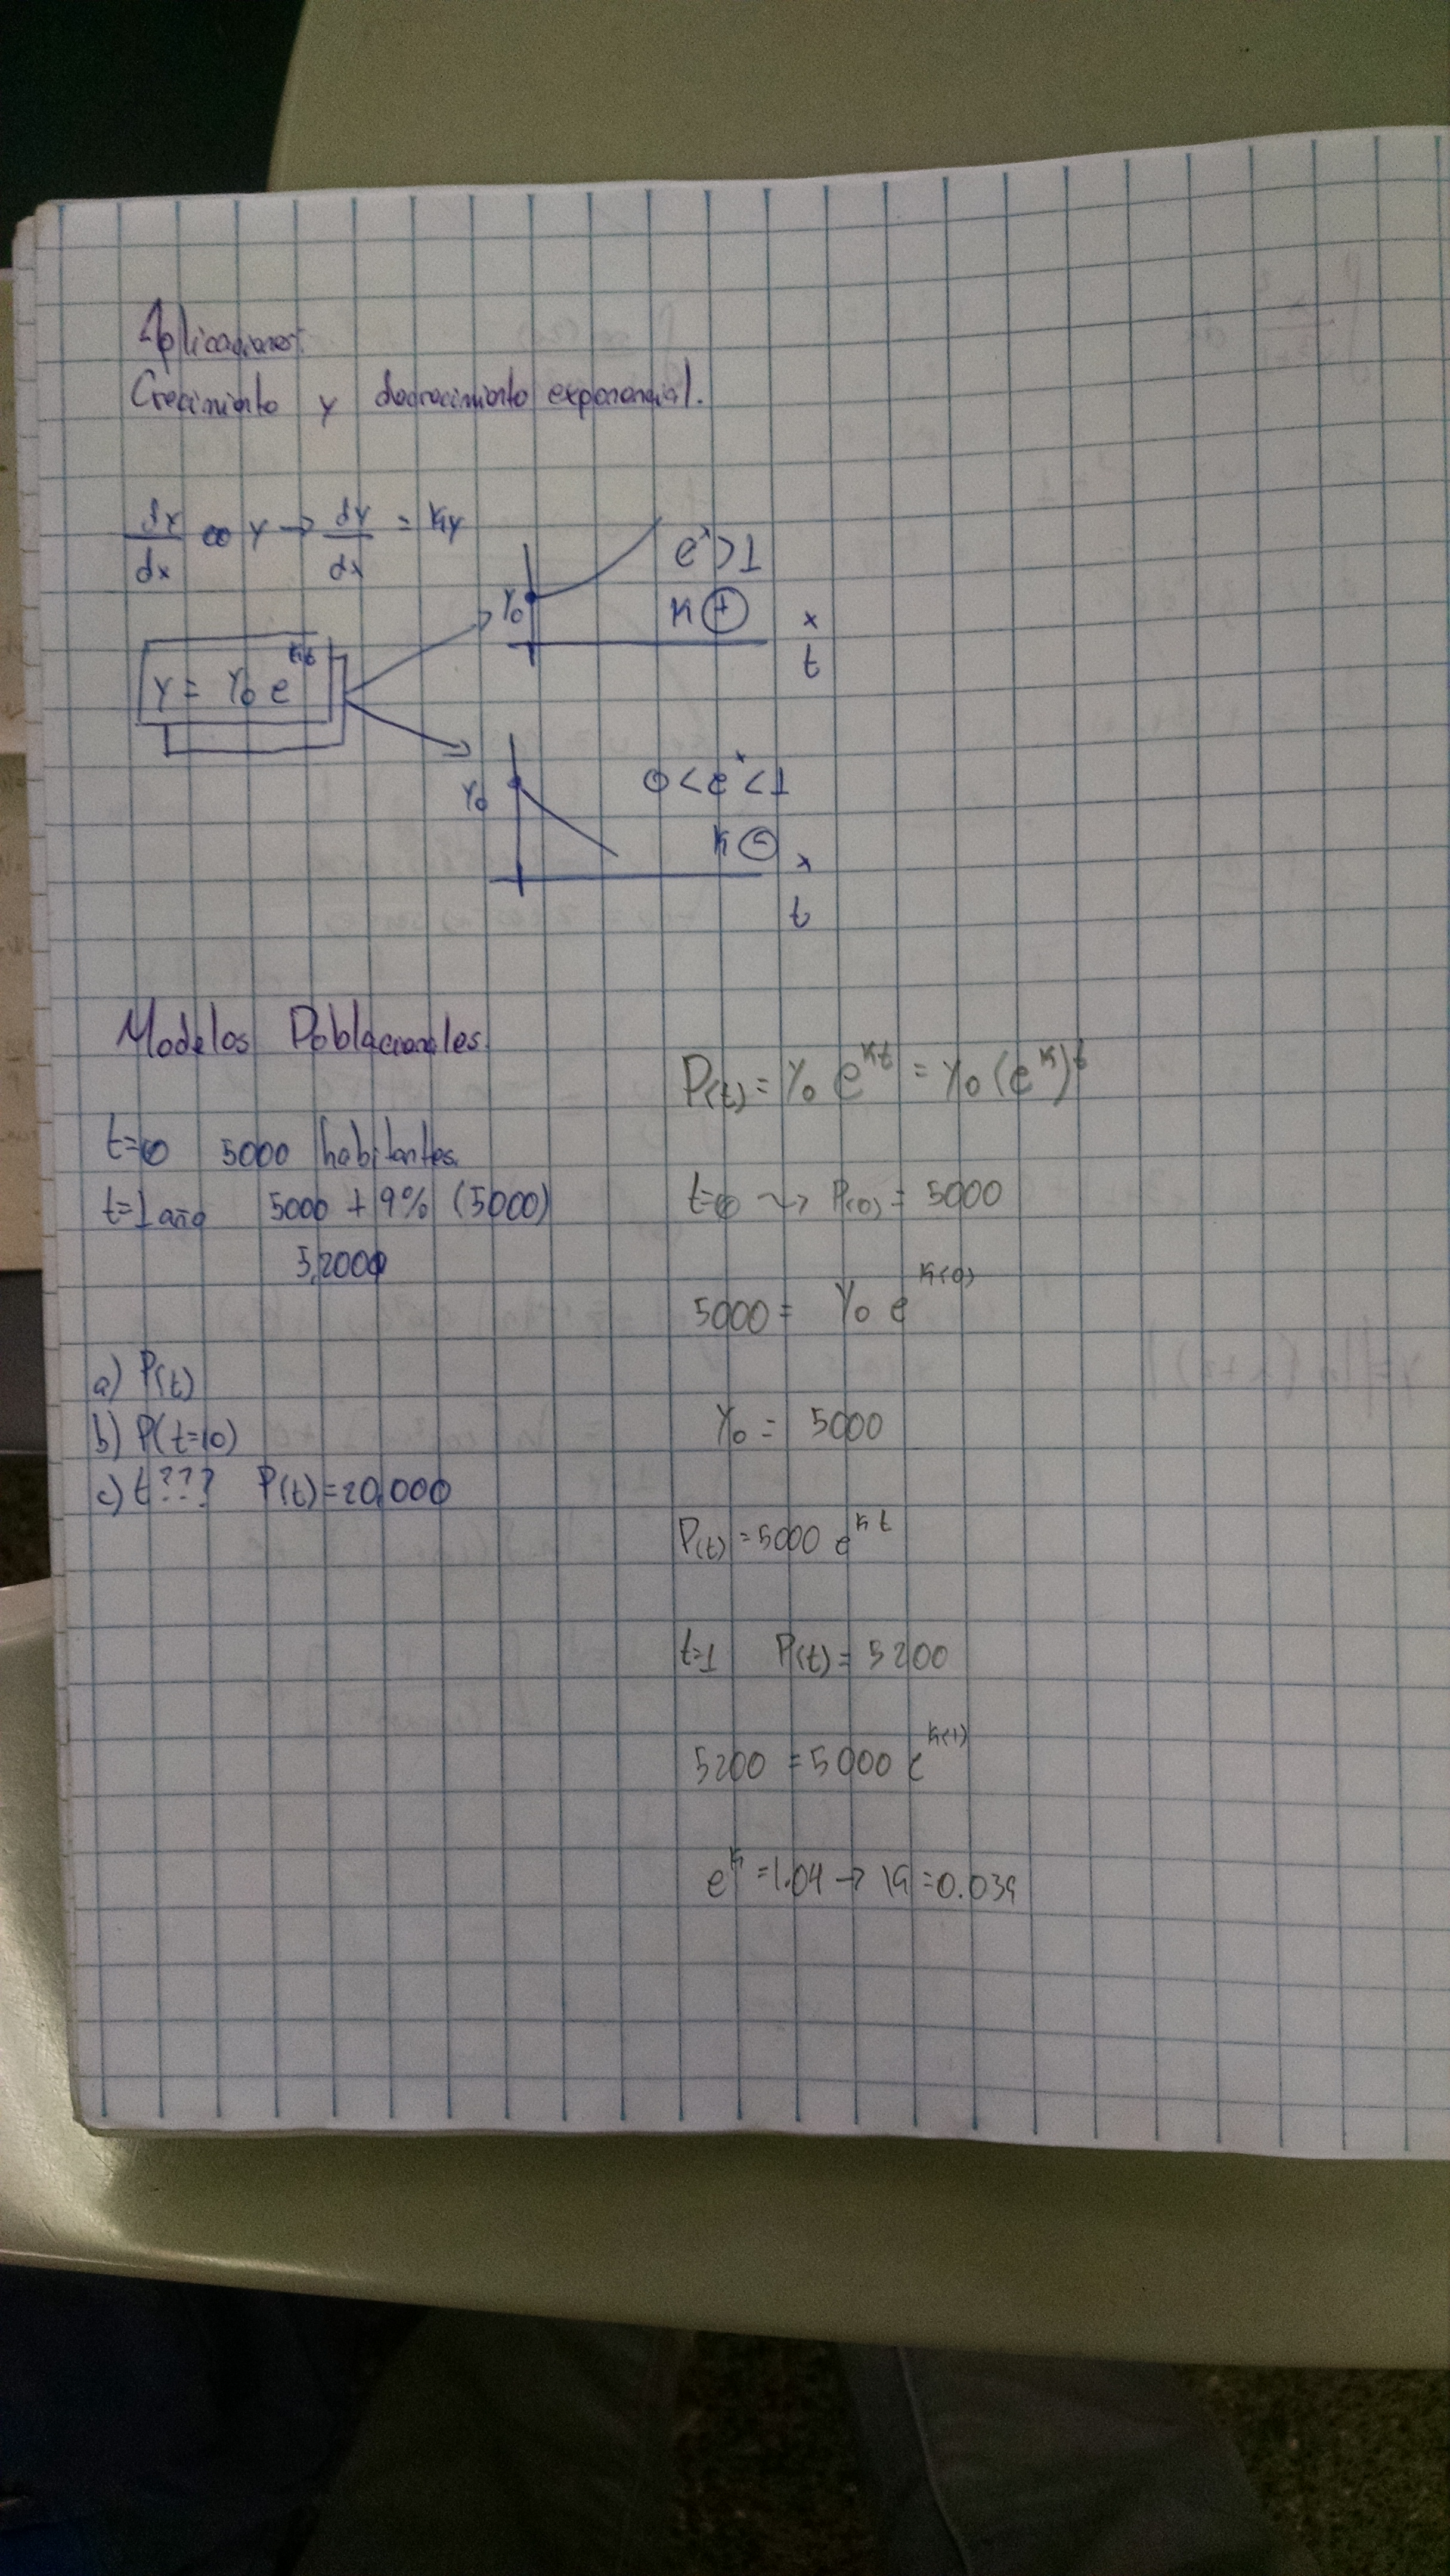 Aplicaciones:
Crecimiento y decrecimiento exponencial.
dy/dx ∝ y → dy/dx = ky
y = y₀ e^kt
y₀
e^x > 1
k ⊕
x
t
y₀
0 < e^x < 1
k ⊖
x
t
Modelos Poblacionales
t=0 5000 habitantes.
t=1 año 5000 + 4% (5000)
5,2000
a) P(t)
b) P(t=10)
c) t??? P(t)=20,000
P(t) = y₀ e^kt = y₀ (e^k)^t
t=0 ⇝ P(0) = 5000
5000 = y₀ e^k(0)
y₀ = 5000
P(t) = 5000 e^kt
t=1 P(t) = 5200
5200 = 5000 e^k(1)
e^k = 1.04 → k = 0.039